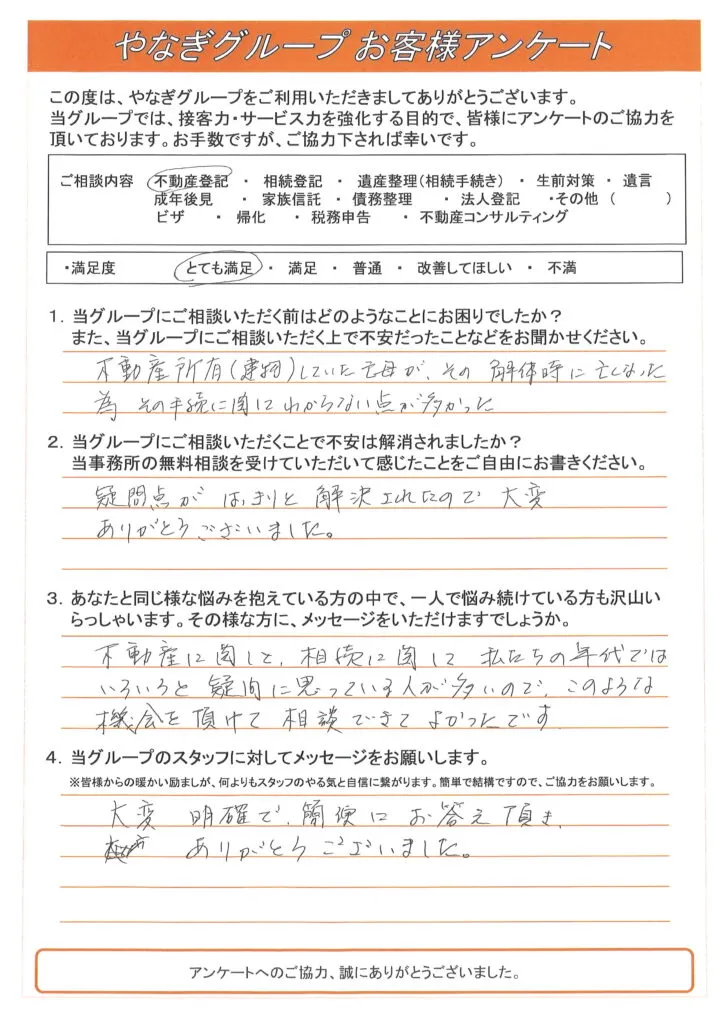 やなぎグループ お客様アンケート
この度は、やなぎグループをご利用いただきましてありがとうございます。
当グループでは、接客力・サービス力を強化する目的で、皆様にアンケートのご協力を
頂いております。お手数ですが、ご協力下されば幸いです。
ご相談内容 不動産登記 ・ 相続登記 ・ 遺産整理(相続手続き) ・ 生前対策 ・ 遺言
成年後見 ・ 家族信託 ・ 債務整理 ・ 法人登記 ・その他 ( )
ビザ ・ 帰化 ・ 税務申告 ・ 不動産コンサルティング
・満足度 とても満足 ・ 満足 ・ 普通 ・ 改善してほしい ・ 不満
1. 当グループにご相談いただく前はどのようなことにお困りでしたか?
また、当グループにご相談いただく上で不安だったことなどをお聞かせください。
不動産所有(建物)していた亡母が、その 解体時に亡くなった
為 その手続に関してわからない点が多かった
2. 当グループにご相談いただくことで不安は解消されましたか?
当事務所の無料相談を受けていただいて感じたことをご自由にお書きください。
疑問点が はっきりと 解決されたので 大変
ありがとうございました。
3. あなたと同じ様な悩みを抱えている方の中で、一人で悩み続けている方も沢山い
らっしゃいます。その様な方に、メッセージをいただけますでしょうか。
不動産に関して、相続に関して 私たちの年代では
いろいろと 疑問に思っている人が多いので、このような
機会を頂けて 相談できてよかったです
4. 当グループのスタッフに対してメッセージをお願いします。
※皆様からの暖かい励ましが、何よりもスタッフのやる気と自信に繋がります。簡単で結構ですので、ご協力をお願いします。
大変 明確で、簡便に お答え頂き、
ありがとうございました。
アンケートへのご協力、誠にありがとうございました。